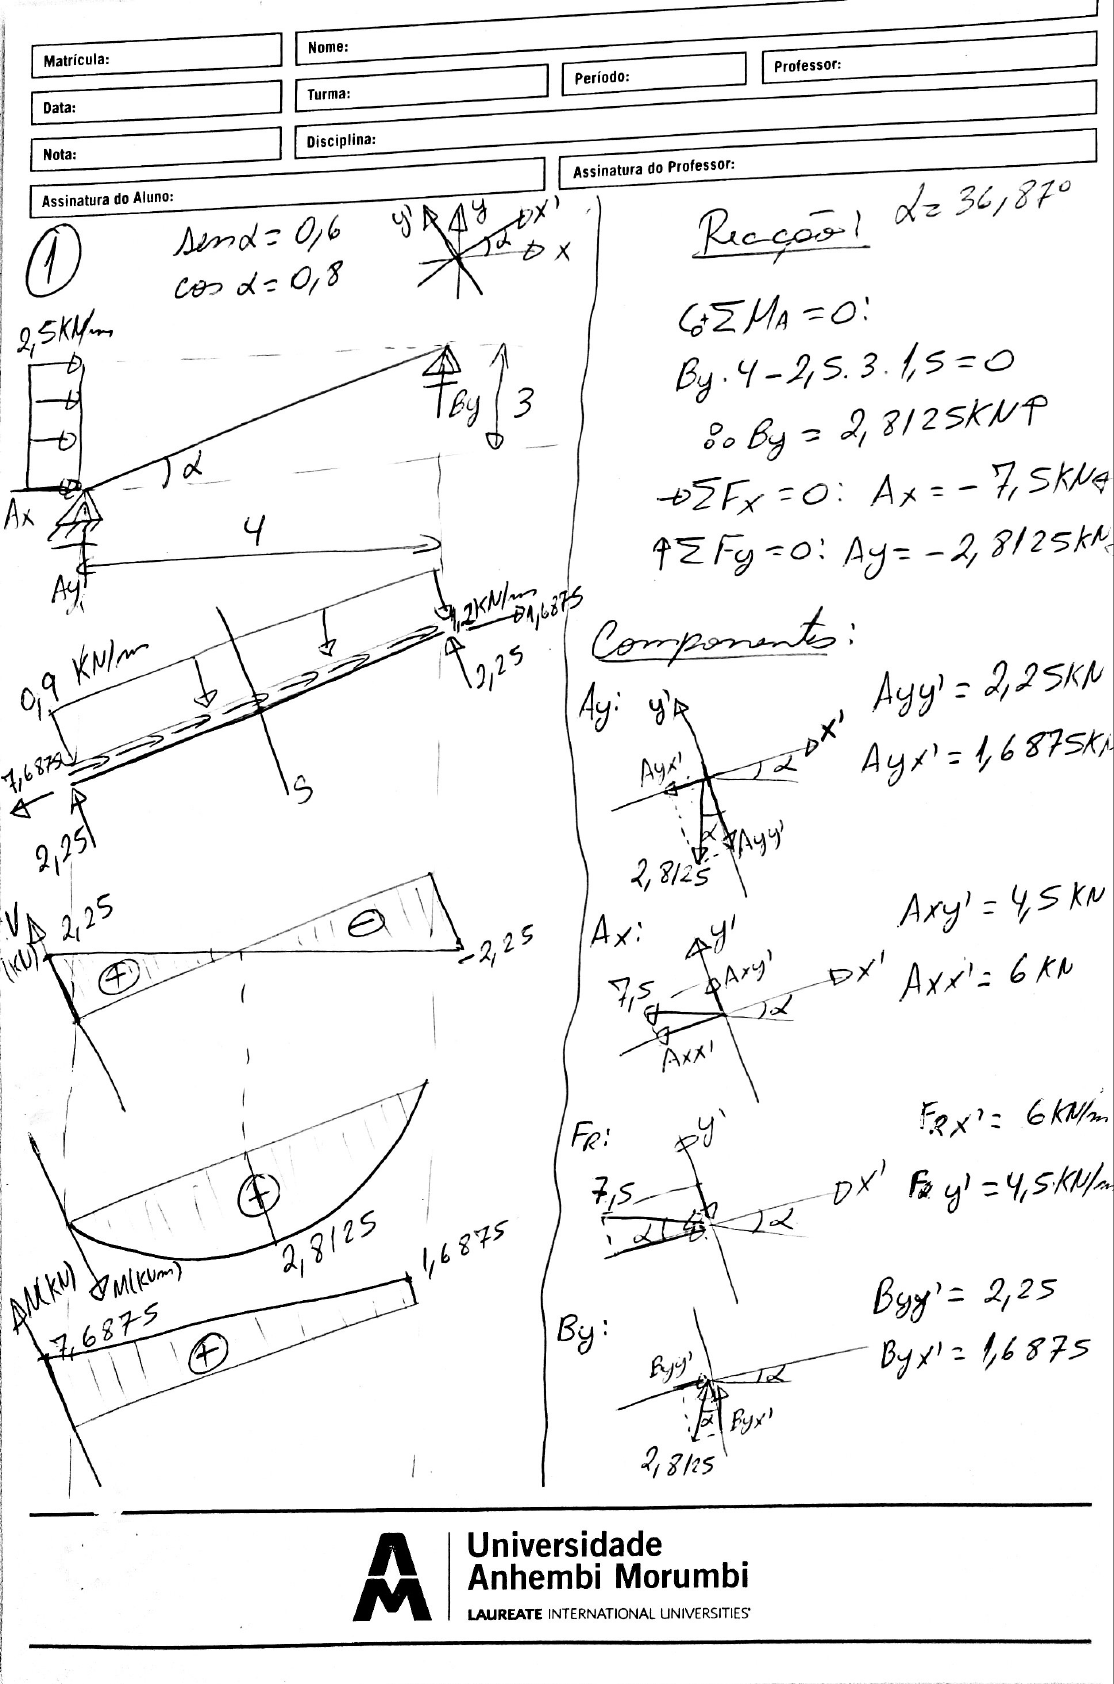 Matrícula:
Nome:
Data:
Turma:
Período:
Professor:
Nota:
Disciplina:
Assinatura do Aluno:
Assinatura do Professor:
1
sen α = 0,6
cos α = 0,8
y' y x'
α
x
2,5KN/m
By
3
α
Ax
4
Ay
0,9 KN/m
1,2KN/m
1,6875
2,25
7,6875
S
2,25
V
(KN)
2,25
+
-
-2,25
+
2,8125
M(KNm)
N(KN)
7,6875
1,6875
+
Reação! α = 36,87°
+ΣMA = 0:
By . 4 - 2,5 . 3 . 1,5 = 0
∴ By = 2,8125KN↑
→ΣFx = 0: Ax = - 7,5KN
↑ΣFy = 0: Ay = - 2,8125KN
Componentes:
Ay: y'
x'
α
Ayx'
α
Ayy'
2,8125
Ayy' = 2,25KN
Ayx' = 1,6875KN
Ax: y'
7,5
Axy'
x'
α
Axx'
Axy' = 4,5 KN
Axx' = 6 KN
FR: y'
7,5
x'
α
α
FRx' = 6 KN/m
FR y' = 4,5 KN/m
By:
Byy'
α
α
Byx'
2,8125
Byy' = 2,25
Byx' = 1,6875
Universidade
Anhembi Morumbi
LAUREATE INTERNATIONAL UNIVERSITIES